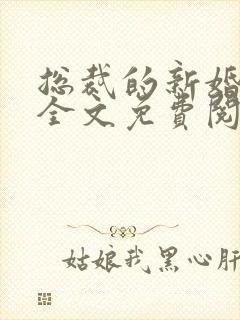 总裁的新婚
全文免費閱
姑娘我黑心肝